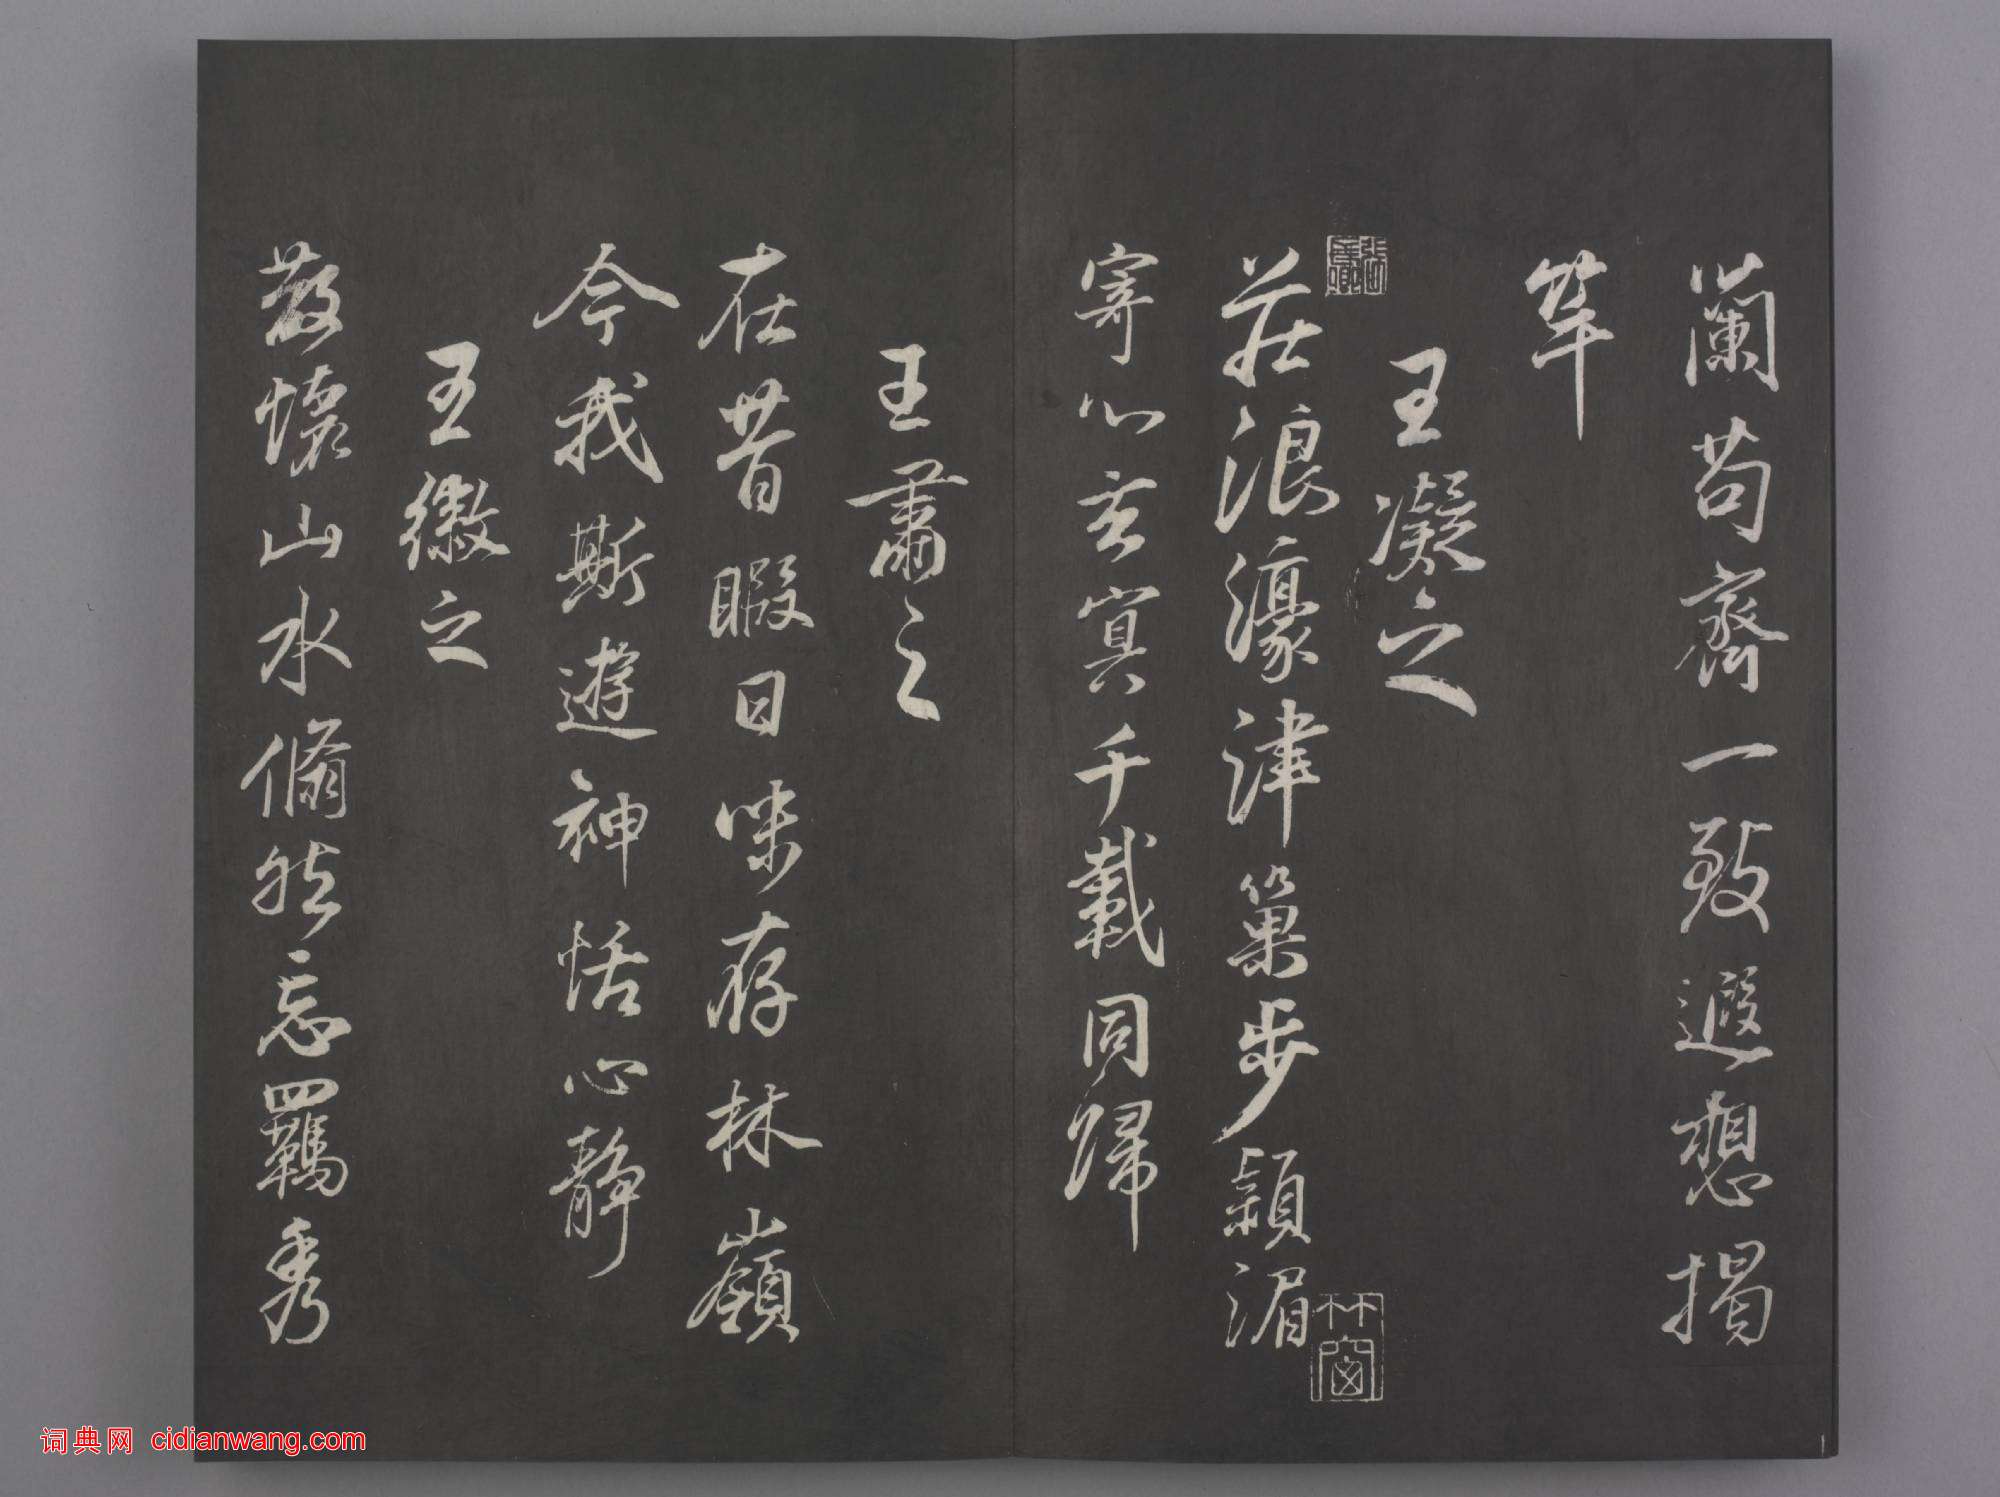 蘭苟齊一致遐想揭
竿
王凝之
莊浪濠津巢步潁湄
寄心玄冥千載同歸
王肅之
在昔暇日味存林嶺
今我斯遊神恬心靜
王徽之
散懷山水翛然忘羈秀
竹窗
词典网 cidianwang.com